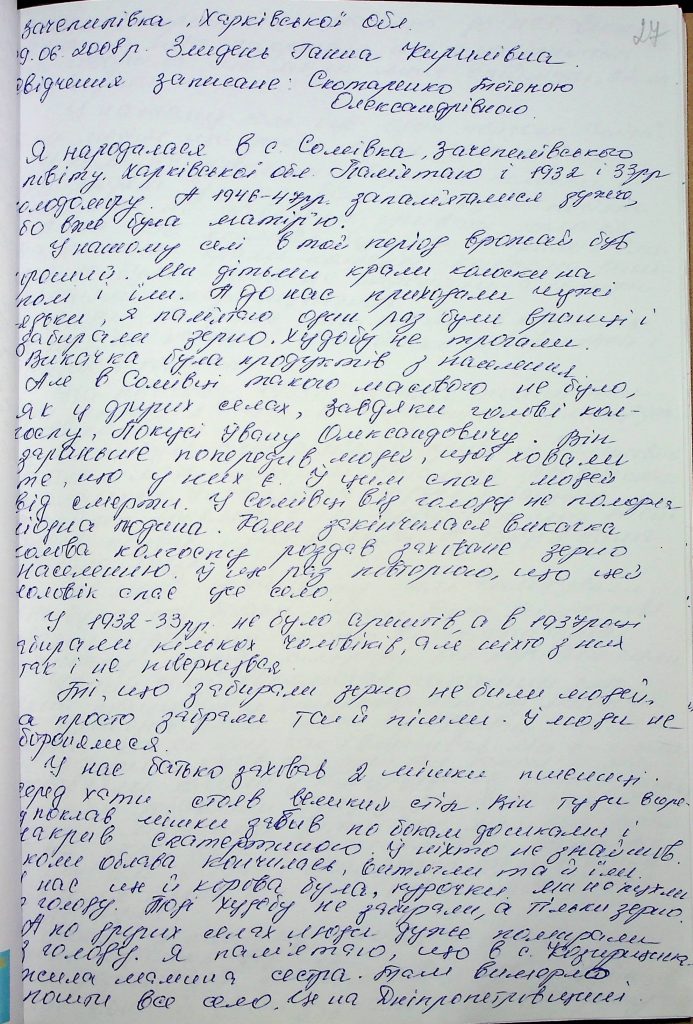 27
Зачепилівка, Харківської обл.
9.06.2008р. Злидень Ганна Кирилівна.
свідчення записане: Скотаренко Тетяною
Олександрівною.
Я народалася в с. Соміївка, Зачепилівського
повіту, Харківської обл. Памʼятаю і 1932 і 33рр
голодомору. А 1946-47рр. запамʼяталися дуже,
бо вже була матірʼю.
У нашому селі в той період врожай був
хороший. Ми дітьми крали колоски на
полі і їли. А до нас приходили чужі
дядьки, я памʼятаю один раз були вранці і
забирали зерно. Худобу не трогали.
Викачка була продуктів з населення.
Але в Соміївці такого масового не було,
як у других селах, завдяки голові кол-
госпу, Покусі Івану Олександовичу. Він
зараньше попередив людей, щоб ховали
те, що у них є. І цим спас людей
від смерті. У Соміївці від голоду не померла
жодна людина. Коли закінчилася викачка
голова колгоспу роздав заховане зерно
населенню. І ще раз повторюю, що цей
чоловік спас усе село.
У 1932-33рр. не було арештів, а в 1937році
забирали кількох чоловіків, але ніхто з них
так і не повернувся.
Ті, що забирали зерно не били людей,
а просто забрали та й пішли. І люди не
боронилися.
У нас батько заховав 2 мішки пшениці.
серед хати стояв великий стіл. Він туди
поклав мішки забив по бокам дошками і
накрив скатертиною. І ніхто не знайшов.
коли облава кончилась, витягли та й їли.
У нас ще й корова була, курочки, ми не пухли
з голоду. Тоді худобу не забирали, а тільки зерно.
А по других селах люди дуже помирали
з голоду. Я памʼятаю, що в с.
жила мамина сестра. Там вимерло
пошти все село. Це на Дніпропетрівщині.